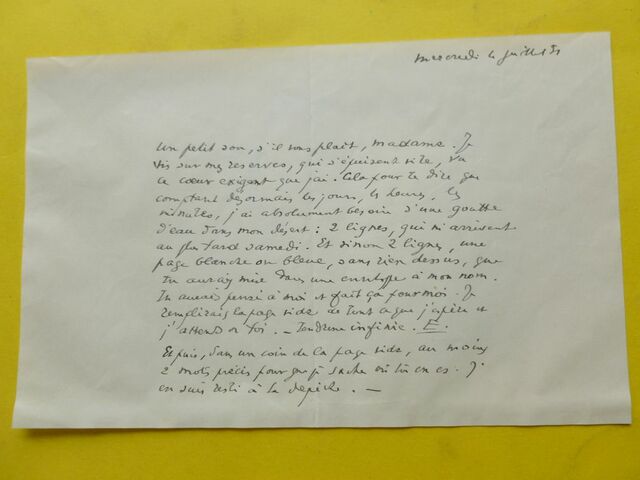 mercredi 4 juillet 51
Un petit sou, s'il vous plait, madame. Je
vis sur mes reserves, qui s'épuisent vite, vu
ce cœur exigent que j'ai. Cela pour te dire que
comptant désormais les jours, les heures, les
minutes, j'ai absolument besoin d'une goutte
d'eau dans mon désert : 2 lignes, qui m'arrivent
au plus tard samedi. Et sinon 2 lignes, une
page blanche ou bleue, sans rien dessus, que
tu auras mise dans une enveloppe à mon nom.
Tu auras pensé à moi et fait ça pour moi. Je
remplirais la page vide de tout ce que j'espère et
j'attends de toi. _ Tendresse infinie. E.
Et puis, dans un coin de la page vide, au moins
2 mots précis pour que je sache où tu en es. J'
en suis resté à la dépêche. _